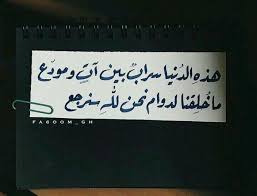 هذه الدنيا سراب بين آتٍ ومودع
ما خلقنا لدوام نحن لله سنرجع
FA6OOM_GH